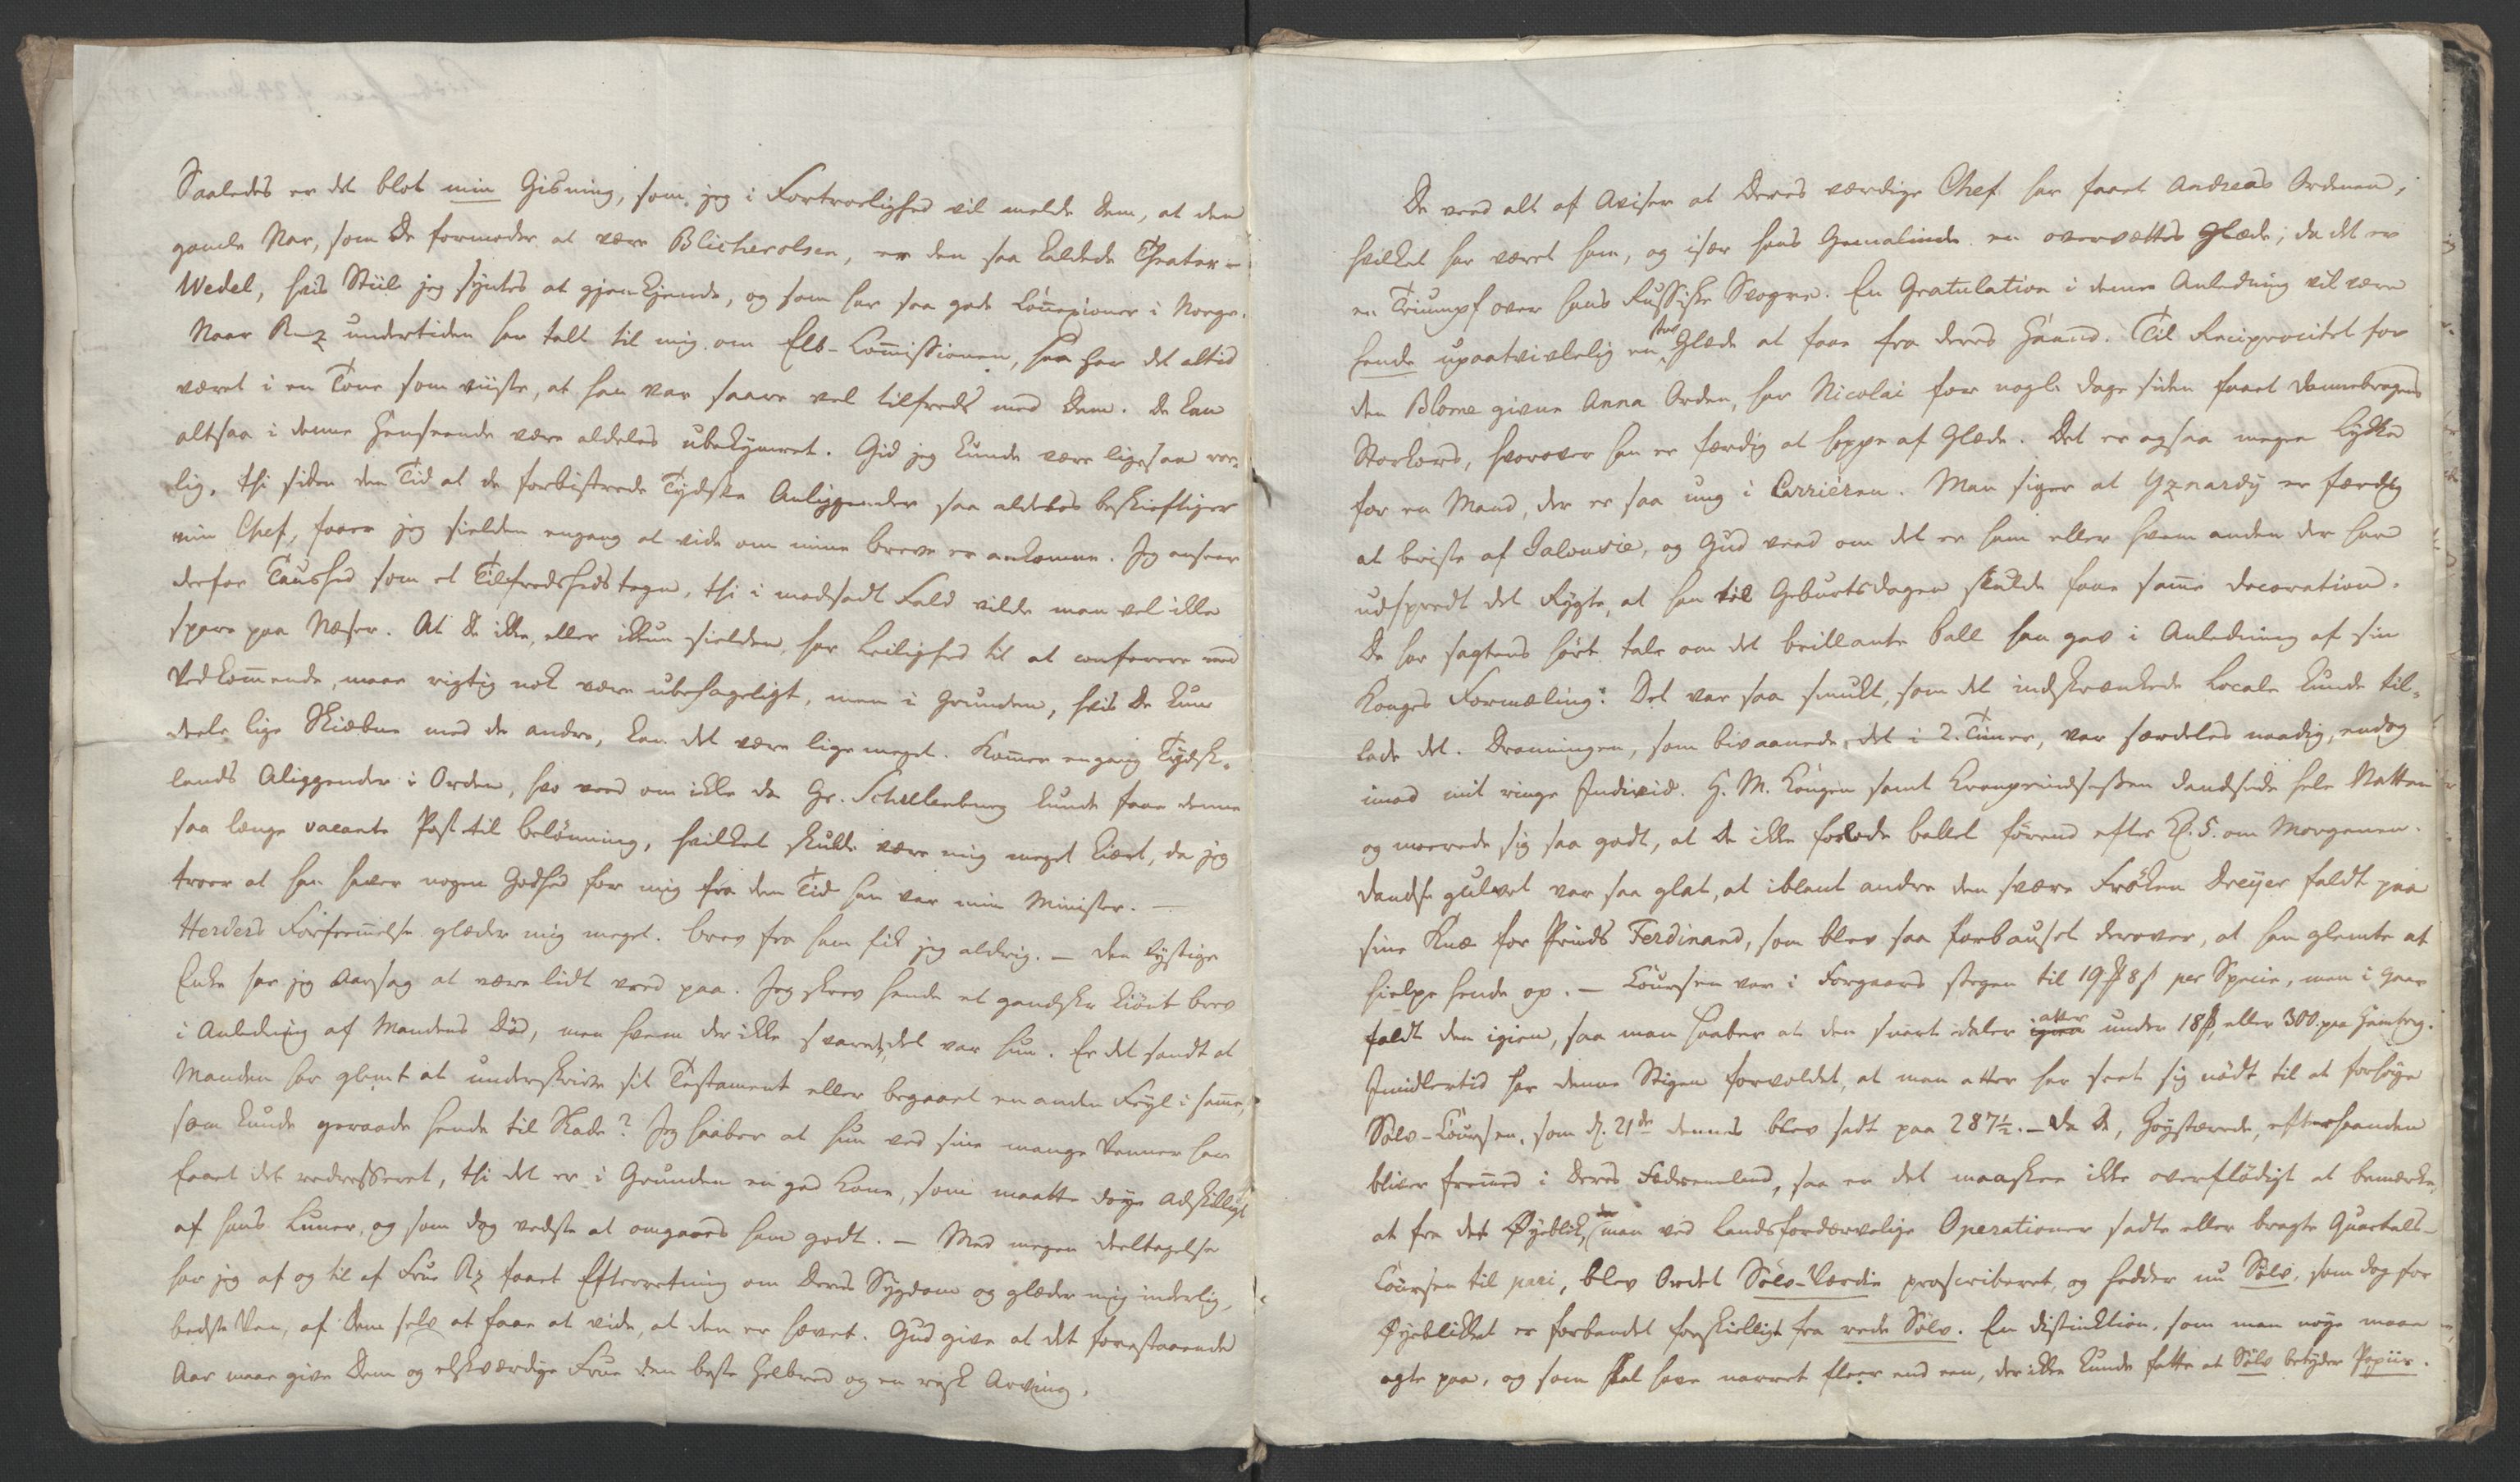 Saaledes er det blot min Gisning, som jeg i Fortroelighed vil melde Dem, at den
gamle Nar, som De formoder at være Blicherolsen, er den saa kaldede Theater-
Wedel, hvis Stiil jeg syntes at gjenkjende, og som har saa gode Connexioner i Norge.
Naar undertiden har talt til mig om Elb-Commissionen, saa har det altid
været i en Tone som viiste, at han var saare vel tilfreds med Dem. De kan
altsaa i denne Henseende være aldeles ubekymret. Gid jeg kunde være ligesaa roe-
lig, thi siden den Tid at de forbistrede Tydske Anliggender saa aldeles beskieftiger
min Chef, faaer jeg sielden engang at vide om mine breve er ankomne. Jeg anseer
derfor Taushed som et Tilfredshedstegn, thi i modsadt Fald vilde man vel ikke
spare paa Næser. At De ikke, eller ikkun sielden, har Leilighed til at conferere med
Vedkommende, maae rigtig nok være ubehageligt, men i Grunden, hvis De kun
deele lige Skiæbne med de andre, kan det være lige meget. Kommer engang Tydsk-
lands Aliggender i Orden, hvo veed om ikke da Gr. Schullenburg kunde faae denne
saa længe vacante Post til belønning, hvilket skulde være mig meget kiært, da jeg
troer at han haver nogen Godhed for mig fra den Tid han var min Minister. —
Herders Forfremmelse glæder mig meget. brev fra ham fik jeg aldrig. — Den lystige
Enke har jeg Aarsag at være lidt vred paa. Jeg skrev hende et gandske kiönt brev
i Anledning af Mandens Död, men hvem der ikke svarede, det var hun. Er det sandt at
Manden har glemt at underskrive sit Testament eller begaaet en anden Fejl i samme,
som kunde geraade hende til Skade? Jeg haaber at hun ved sine mange Venner har
faaet det redresseret, thi det er i Grunden en god Kone, som maatte döye adskilligt
af hans Luner, og som dog vedste at omgaaes ham godt. — Med megen deeltagelse
har jeg af og til af Frue Rz faaet Efterretning om Deres Sygdom og glæder mig inderlig,
bedste Ven, af Dem selv at faae at vide, at den er hævet. Gud give at det forestaaende
Aar maae give Dem og elskværdige Frue den beste Helbred og en rask Arving.
De veed alt af Aviser at Deres værdige Chef har faaet Andreas Ordenen,
hvilket har været ham, og især hans Gemalinde en overvættes Glæde, da det er
en Triumpf over hans Russiske Svogre. En Gratulation i denne Anledning vil være
hende upaatvivlelig en stor Glæde at faae fra Deres Haand. Til Reciprocitet for
den Blome givne Anna Orden, har Nicolai for nogle dage siden faaet Dannebrogens
Storkors, hvorover han er færdig at hoppe af Glæde. Det er ogsaa megen Lykke
for en Mand, der er saa ung i Carriéren. Man siger at Yznardy er færdig
at briste af Jalousie, og Gud veed om det er ham eller hvem anden der har
udspredt det Rygte, at han til Geburtsdagen skulde faae samme decoration.
De har sagtens hört tale om det brillante ball han gav i Anledning af sin
Konges Formæling: Det var saa smukt, som det indskrænkede Locale kunde til-
lade det. Dronningen, som bivaanede det i 2. Timer, var særdeles naadig, endog
imod mit ringe Individ. H. M. Kongen samt Kronprindsessen dandsede hele Natten
og moerede sig saa godt, at De ikke forlode ballet förend efter Kl. 5. om Morgenen.
Dandse gulvet var saa glat, at iblant andre den svære Fröken Dreyer faldt paa
sine Knæ for Prinds Ferdinand, som blev saa forbauset derover, at han glemte at
hielpe hende op. — Coursen var i Forgaars stegen til 19 8 ß per Specie, men i Gaar
faldt den igien, saa man haaber at den snart daler igien atter under 18, eller 300. paa Hamborg.
Imidlertid har denne Stigen forvoldet, at man atter har seet sig nödt til at forhöye
Sölv-Coursen, som d. 21de dennes blev sadt paa 287½. — Da De, Höystærede, efterhaanden
bliver fremmed i Deres Fædreneland, saa er det maaskee ikke overflödigt at bemærke,
at fra det Øyeblik, da man ved Landsfordærvelige Operationer satte eller bragte Quartals-
Coursen til pari, blev Ordet Sölv-Værdie proscriberet, og hedder nu Sölv, som dog for
Øyeblikket er forbandet forskielligt fra rede Sölv. En Distinktion, som man nöye maae
agte paa, og som skal have narret fleer end een, der ikke kunde fatte at Sölv betyder Papiir.